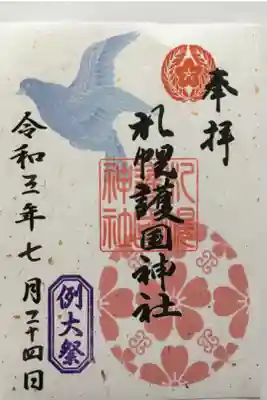 奉拝
札幌護国神社
神社
令和五年七月二十四日
例大祭